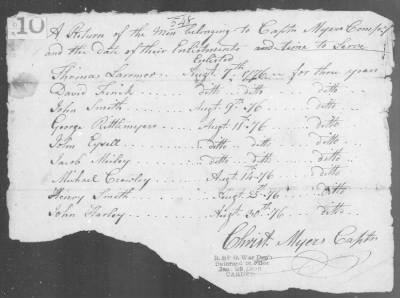 10
A Return of the Men belonging to Captn Myers Compy
and the date of their Enlistments and time to Serve
Enlisted
Thomas Larimor Augt 9th 1776 for three years
David Finck ditto ditto ditto
John Smith Augt 9th 76 ditto
George Rittlemyers Augt 11th 76 ditto
John Eysell ditto ditto ditto
Jacob Meiley ditto ditto ditto
Michael Crowley Augt 14 76 ditto
Henry Smith Augt 25th 76 ditto
John Harley Augt 30th 76 ditto
Christ. Myers Captn
R. & P. O. War Dep't